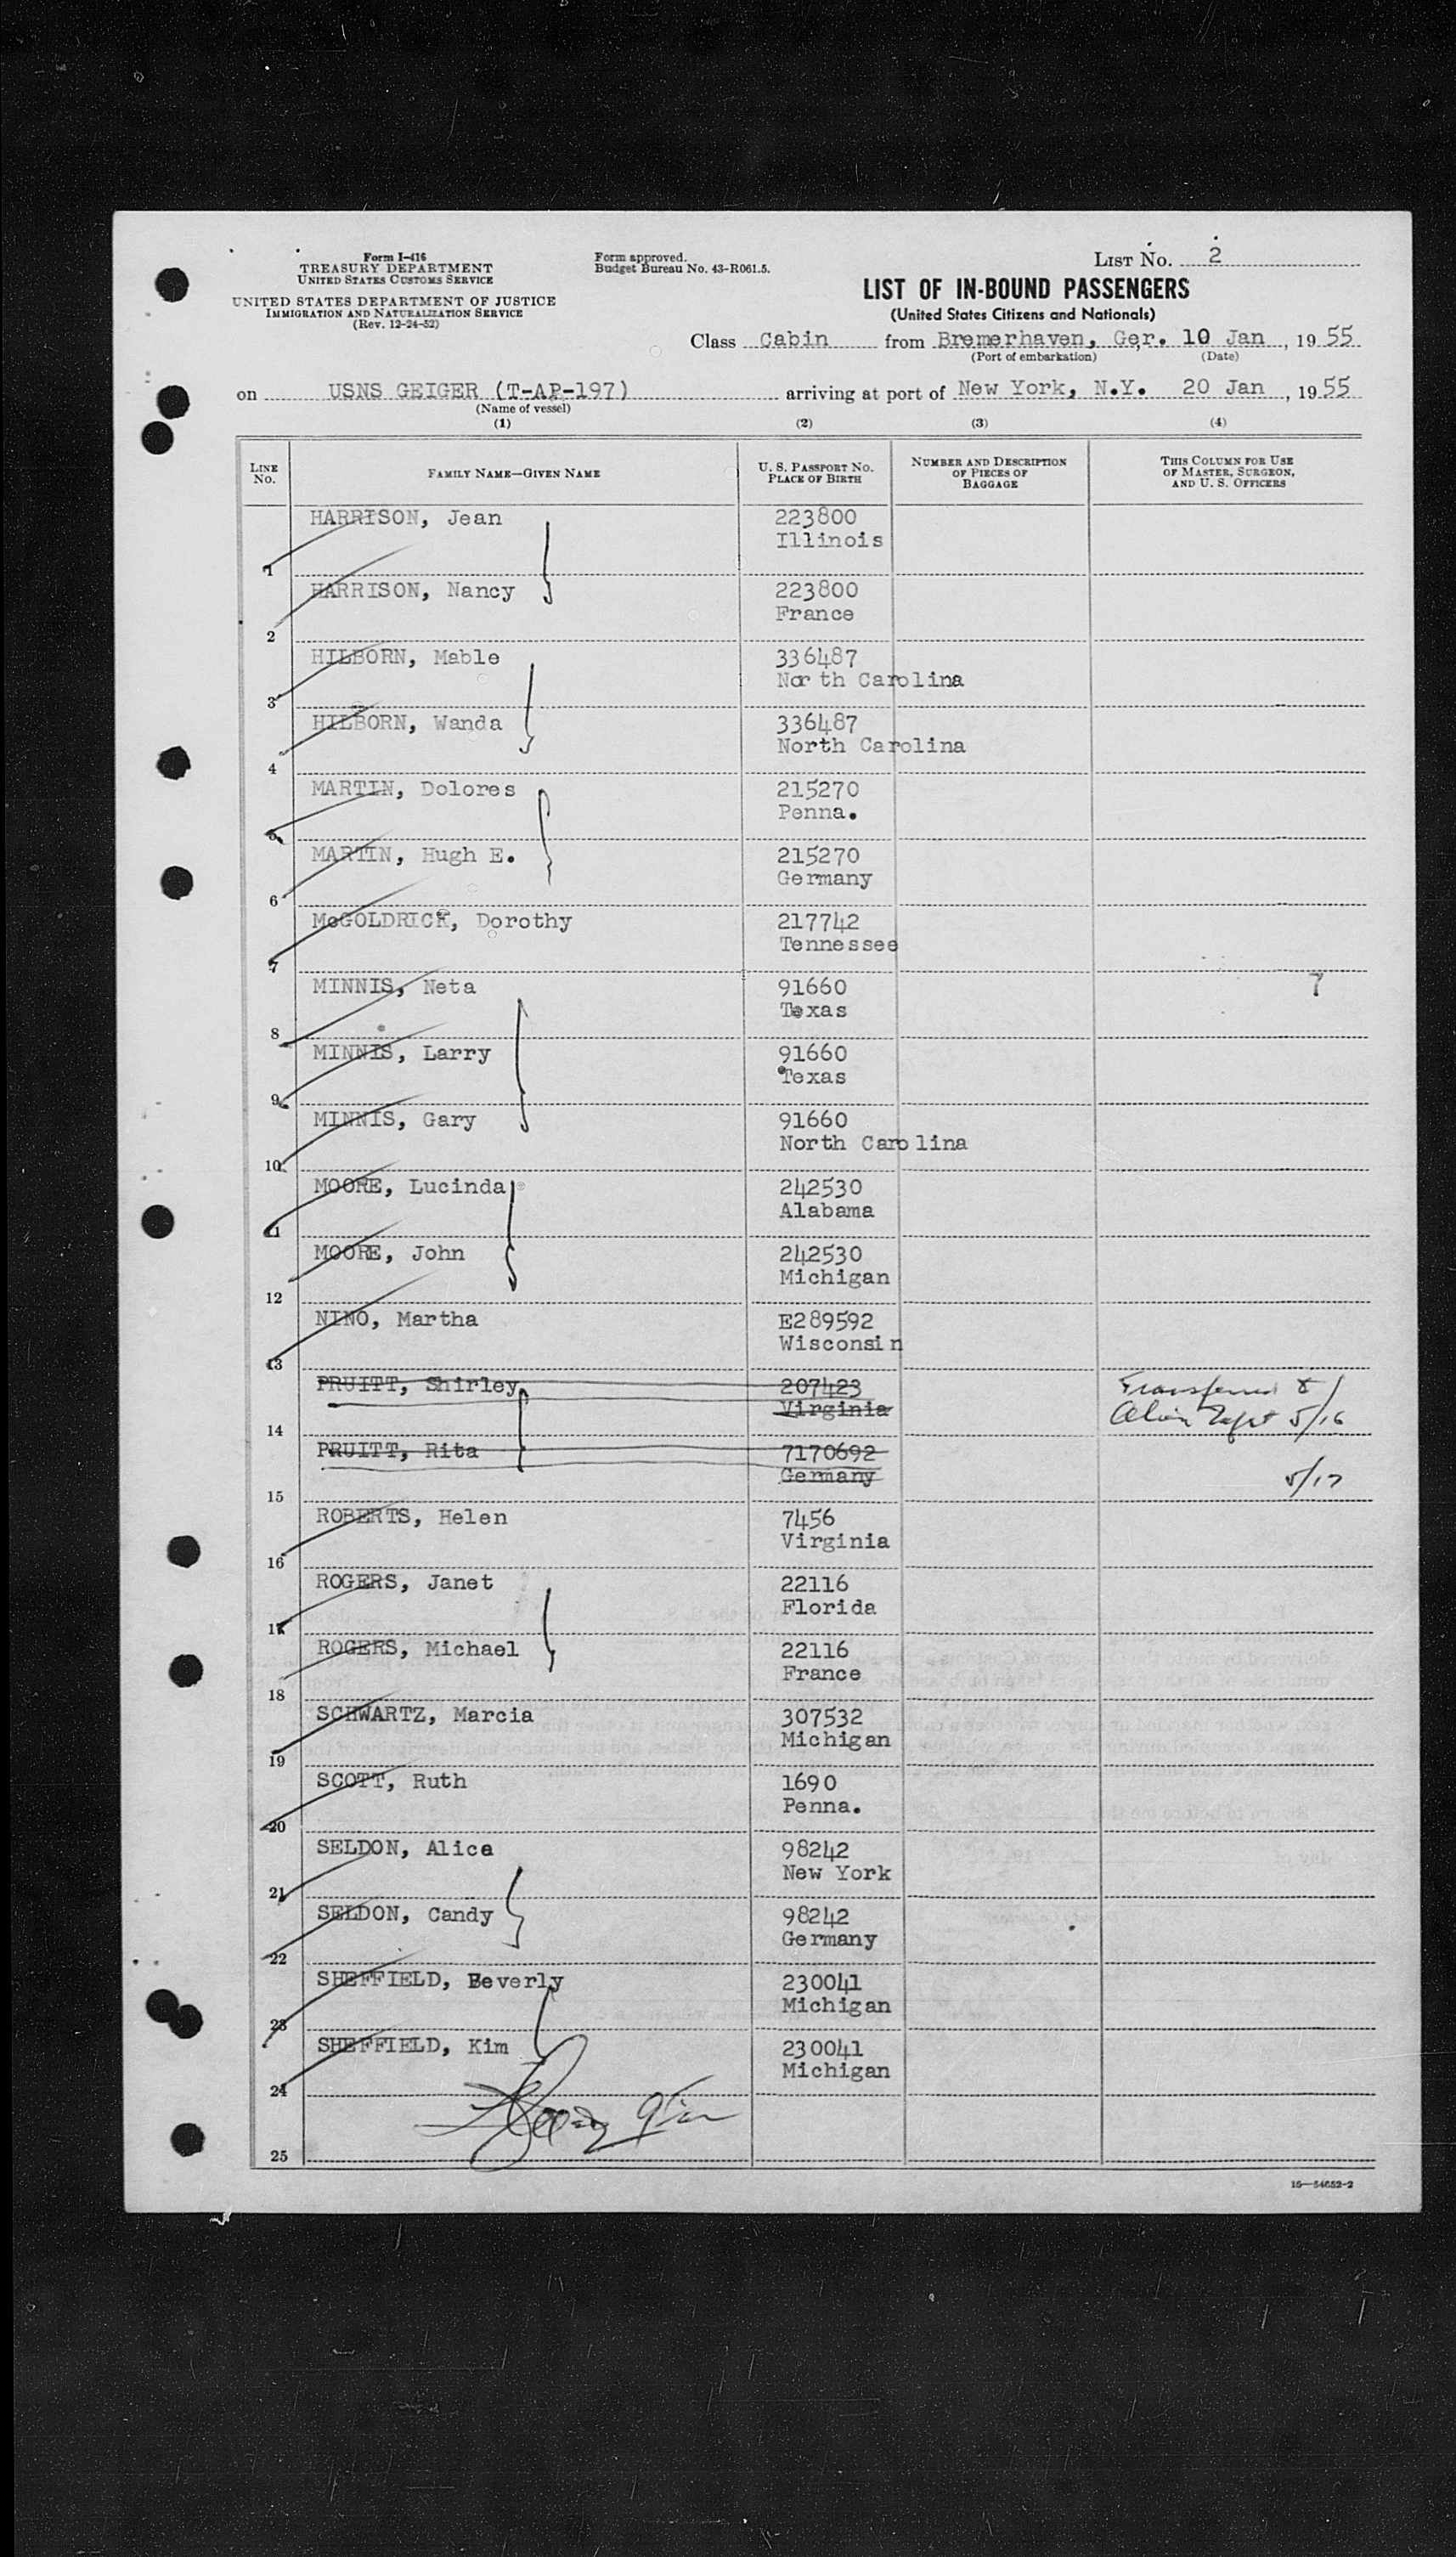 Form I-416
TREASURY DEPARTMENT
UNITED STATES CUSTOMS SERVICE
UNITED STATES DEPARTMENT OF JUSTICE
IMMIGRATION AND NATURALIZATION SERVICE
(Rev. 12-24-52)
Form approved.
Budget Bureau No. 43-R061.5.
LIST No. 2
LIST OF IN-BOUND PASSENGERS
(United States Citizens and Nationals)
Class Cabin from Bremerhaven, Ger. 10 Jan, 1955
(Port of embarkation) (Date)
on USNS GEIGER (T-AP-197) arriving at port of New York, N.Y. 20 Jan, 1955
(Name of vessel)
(1) (2) (3) (4)
LINE No. FAMILY NAME—GIVEN NAME U. S. PASSPORT NO. PLACE OF BIRTH NUMBER AND DESCRIPTION OF PIECES OF BAGGAGE THIS COLUMN FOR USE OF MASTER, SURGEON, AND U. S. OFFICERS
HARRISON, Jean 223800
Illinois
1
HARRISON, Nancy 223800
France
2
HILBORN, Mable 336487
North Carolina
3
HILBORN, Wanda 336487
North Carolina
4
MARTIN, Dolores 215270
Penna.
5
MARTIN, Hugh E. 215270
Germany
6
McGOLDRICK, Dorothy 217742
Tennessee
7
MINNIS, Neta 91660 7
Texas
8
MINNIS, Larry 91660
Texas
9
MINNIS, Gary 91660
North Carolina
10
MOORE, Lucinda 242530
Alabama
11
MOORE, John 242530
Michigan
12
NINO, Martha E289592
Wisconsin
13
PRUITT, Shirley 207423 Transferred to
Virginia Alien 5/16
14
PRUITT, Rita 7170692
Germany 5/17
15
ROBERTS, Helen 7456
Virginia
16
ROGERS, Janet 22116
Florida
17
ROGERS, Michael 22116
France
18
SCHWARTZ, Marcia 307532
Michigan
19
SCOTT, Ruth 1690
Penna.
20
SELDON, Alice 98242
New York
21
SELDON, Candy 98242
Germany
22
SHEFFIELD, Beverly 230041
Michigan
23
SHEFFIELD, Kim 230041
Michigan
24
25
16—54652-2